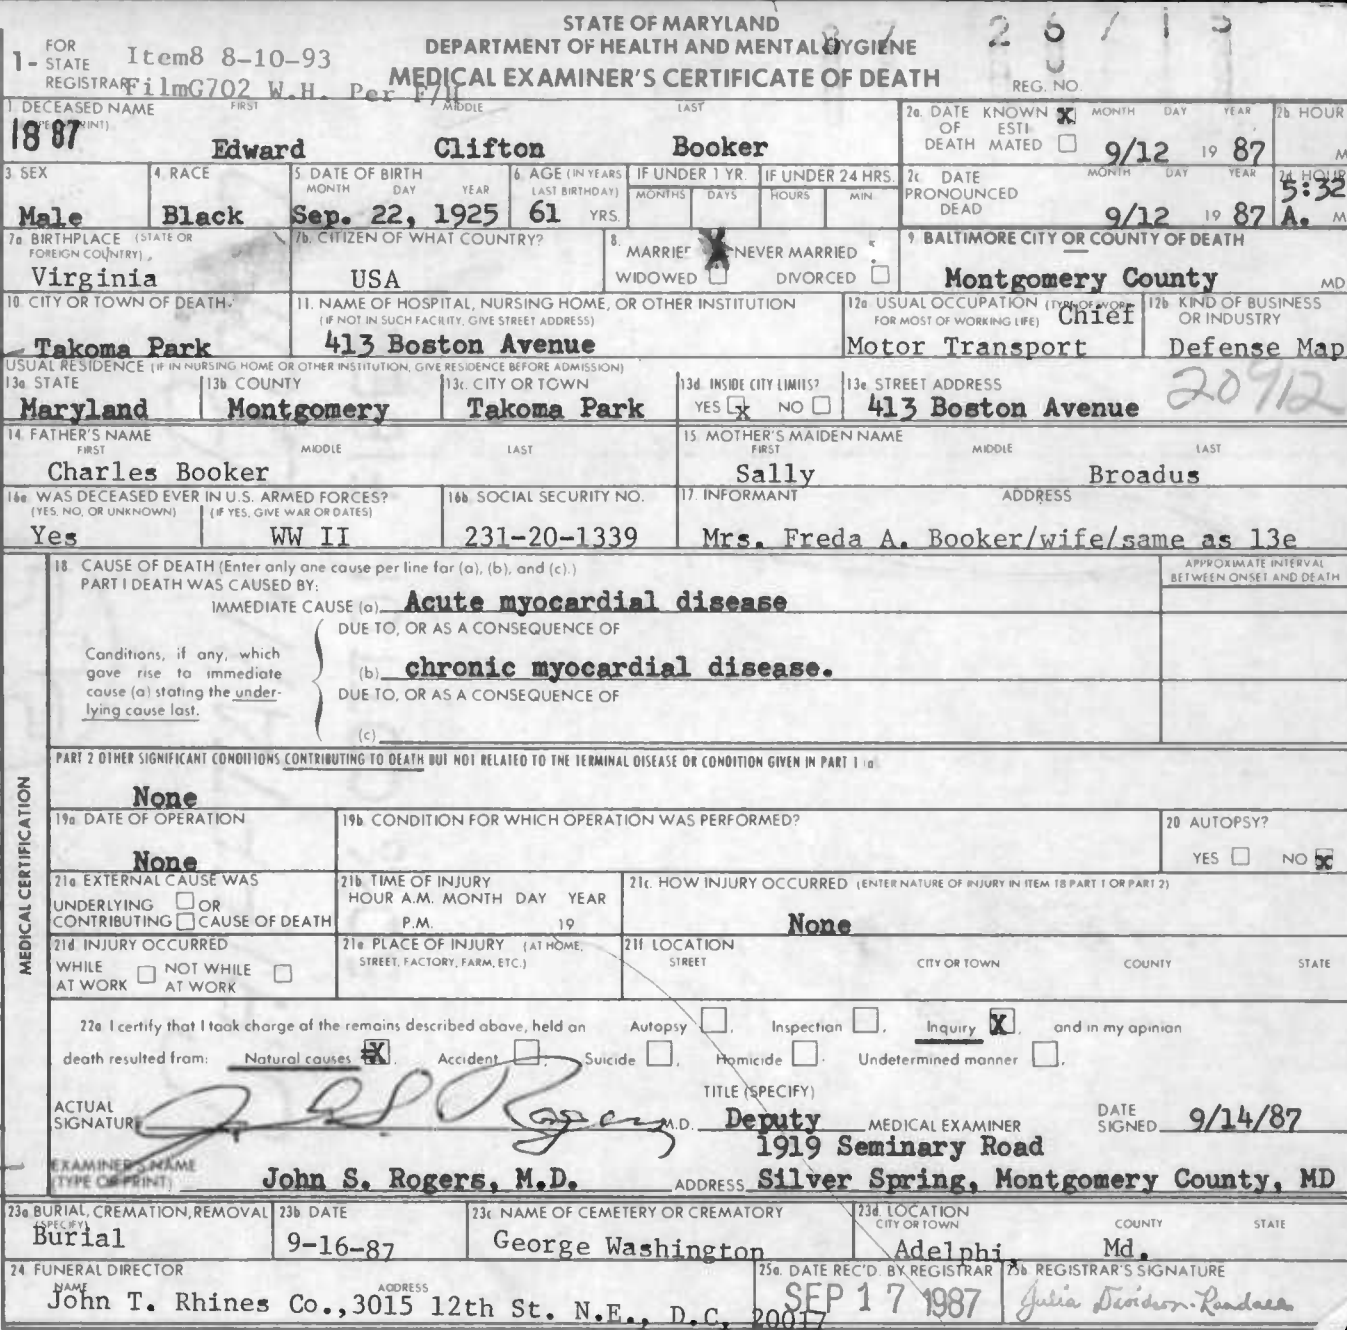 STATE OF MARYLAND
DEPARTMENT OF HEALTH AND MENTAL HYGIENE
MEDICAL EXAMINER'S CERTIFICATE OF DEATH
REG. NO.
1- FOR STATE REGISTRAR
Item8 8-10-93
FilmG702 W.H. Per F/H
1 DECEASED NAME FIRST MIDDLE LAST
1887
Edward Clifton Booker
2a. DATE OF DEATH KNOWN X ESTIMATED MONTH DAY YEAR
9/12 19 87
2b HOUR
M
3 SEX
Male
4. RACE
Black
5. DATE OF BIRTH MONTH DAY YEAR
Sep. 22, 1925
6. AGE (IN YEARS LAST BIRTHDAY)
61 YRS.
IF UNDER 1 YR. MONTHS DAYS
IF UNDER 24 HRS. HOURS MIN.
2c DATE PRONOUNCED DEAD MONTH DAY YEAR
9/12 19 87
2d HOUR
5:32
A. M
7a BIRTHPLACE (STATE OR FOREIGN COUNTRY)
Virginia
7b. CITIZEN OF WHAT COUNTRY?
USA
8. MARRIED X NEVER MARRIED
WIDOWED DIVORCED
9 BALTIMORE CITY OR COUNTY OF DEATH
Montgomery County MD
10. CITY OR TOWN OF DEATH
Takoma Park
11. NAME OF HOSPITAL, NURSING HOME, OR OTHER INSTITUTION
(IF NOT IN SUCH FACILITY, GIVE STREET ADDRESS)
413 Boston Avenue
12a USUAL OCCUPATION (TYPE OF WORK FOR MOST OF WORKING LIFE)
Chief
Motor Transport
12b KIND OF BUSINESS OR INDUSTRY
Defense Map
USUAL RESIDENCE (IF IN NURSING HOME OR OTHER INSTITUTION, GIVE RESIDENCE BEFORE ADMISSION)
13a STATE
Maryland
13b COUNTY
Montgomery
13c. CITY OR TOWN
Takoma Park
13d INSIDE CITY LIMITS?
YES X NO
13e STREET ADDRESS
413 Boston Avenue
20912
14 FATHER'S NAME FIRST MIDDLE LAST
Charles Booker
15. MOTHER'S MAIDEN NAME FIRST MIDDLE LAST
Sally Broadus
16a WAS DECEASED EVER IN U.S. ARMED FORCES?
(YES, NO, OR UNKNOWN) (IF YES, GIVE WAR OR DATES)
Yes WW II
16b SOCIAL SECURITY NO.
231-20-1339
17. INFORMANT ADDRESS
Mrs. Freda A. Booker/wife/same as 13e
MEDICAL CERTIFICATION
18 CAUSE OF DEATH (Enter only one cause per line for (a), (b), and (c).)
APPROXIMATE INTERVAL BETWEEN ONSET AND DEATH
PART I DEATH WAS CAUSED BY:
IMMEDIATE CAUSE (a) Acute myocardial disease
DUE TO, OR AS A CONSEQUENCE OF
Conditions, if any, which gave rise to immediate cause (a) stating the underlying cause last.
(b) chronic myocardial disease.
DUE TO, OR AS A CONSEQUENCE OF
(c)
PART 2 OTHER SIGNIFICANT CONDITIONS CONTRIBUTING TO DEATH BUT NOT RELATED TO THE TERMINAL DISEASE OR CONDITION GIVEN IN PART 1 (a)
None
19a DATE OF OPERATION
None
19b CONDITION FOR WHICH OPERATION WAS PERFORMED?
20 AUTOPSY?
YES NO X
21a EXTERNAL CAUSE WAS
UNDERLYING OR
CONTRIBUTING CAUSE OF DEATH
21b TIME OF INJURY
HOUR A.M. MONTH DAY YEAR
P.M. 19
21c. HOW INJURY OCCURRED (ENTER NATURE OF INJURY IN ITEM 18 PART 1 OR PART 2)
None
21d INJURY OCCURRED
WHILE AT WORK NOT WHILE AT WORK
21e PLACE OF INJURY (AT HOME, STREET, FACTORY, FARM, ETC.)
21f LOCATION
STREET CITY OR TOWN COUNTY STATE
22a I certify that I took charge of the remains described above, held an Autopsy , Inspection , Inquiry X , and in my opinion
death resulted from: Natural causes X , Accident , Suicide , Homicide . Undetermined manner .
TITLE (SPECIFY)
ACTUAL SIGNATURE M.D. Deputy MEDICAL EXAMINER
DATE SIGNED 9/14/87
1919 Seminary Road
EXAMINER'S NAME (TYPE OR PRINT) John S. Rogers, M.D. ADDRESS Silver Spring, Montgomery County, MD
23a BURIAL, CREMATION, REMOVAL (SPECIFY)
Burial
23b DATE
9-16-87
23c NAME OF CEMETERY OR CREMATORY
George Washington
23d. LOCATION
CITY OR TOWN COUNTY STATE
Adelphi, Md.
24 FUNERAL DIRECTOR
NAME ADDRESS
John T. Rhines Co.,3015 12th St. N.E., D.C. 20017
25a. DATE REC'D. BY REGISTRAR
SEP 17 1987
25b. REGISTRAR'S SIGNATURE
Julia Davidson-Randall